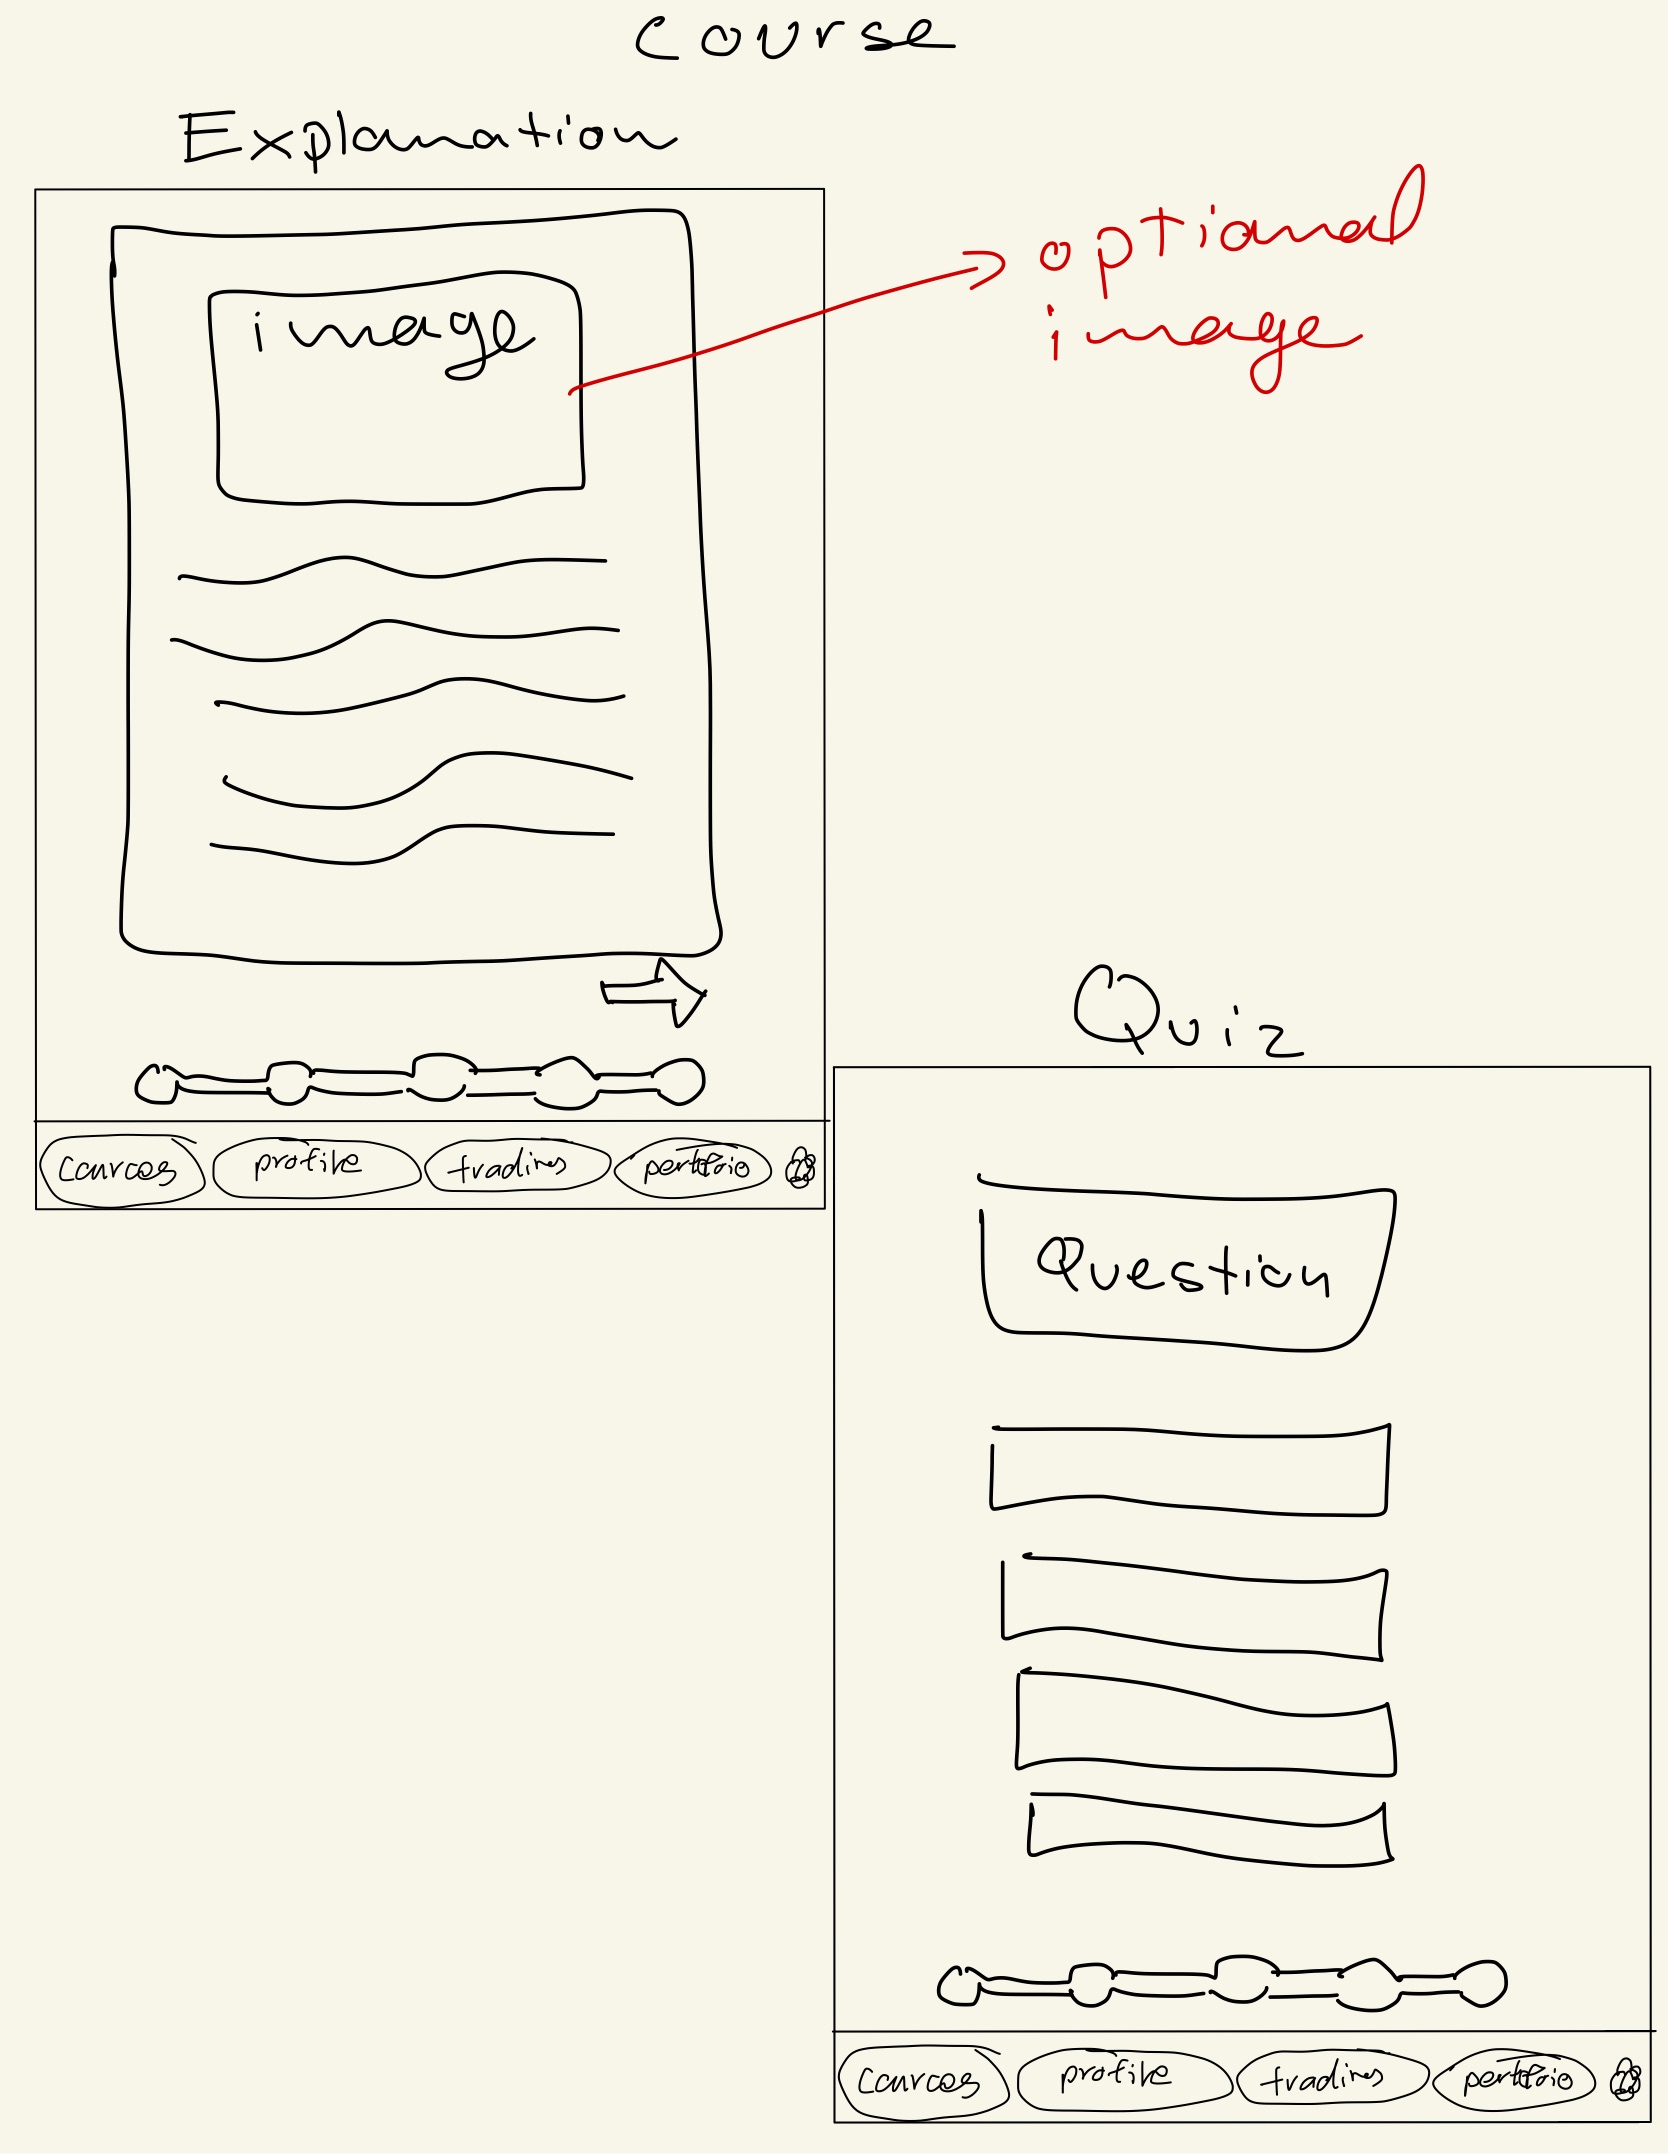 Course
Explanation
image
optional
image
Cources
profile
trading
Quiz
Question
Cources
profile
trading